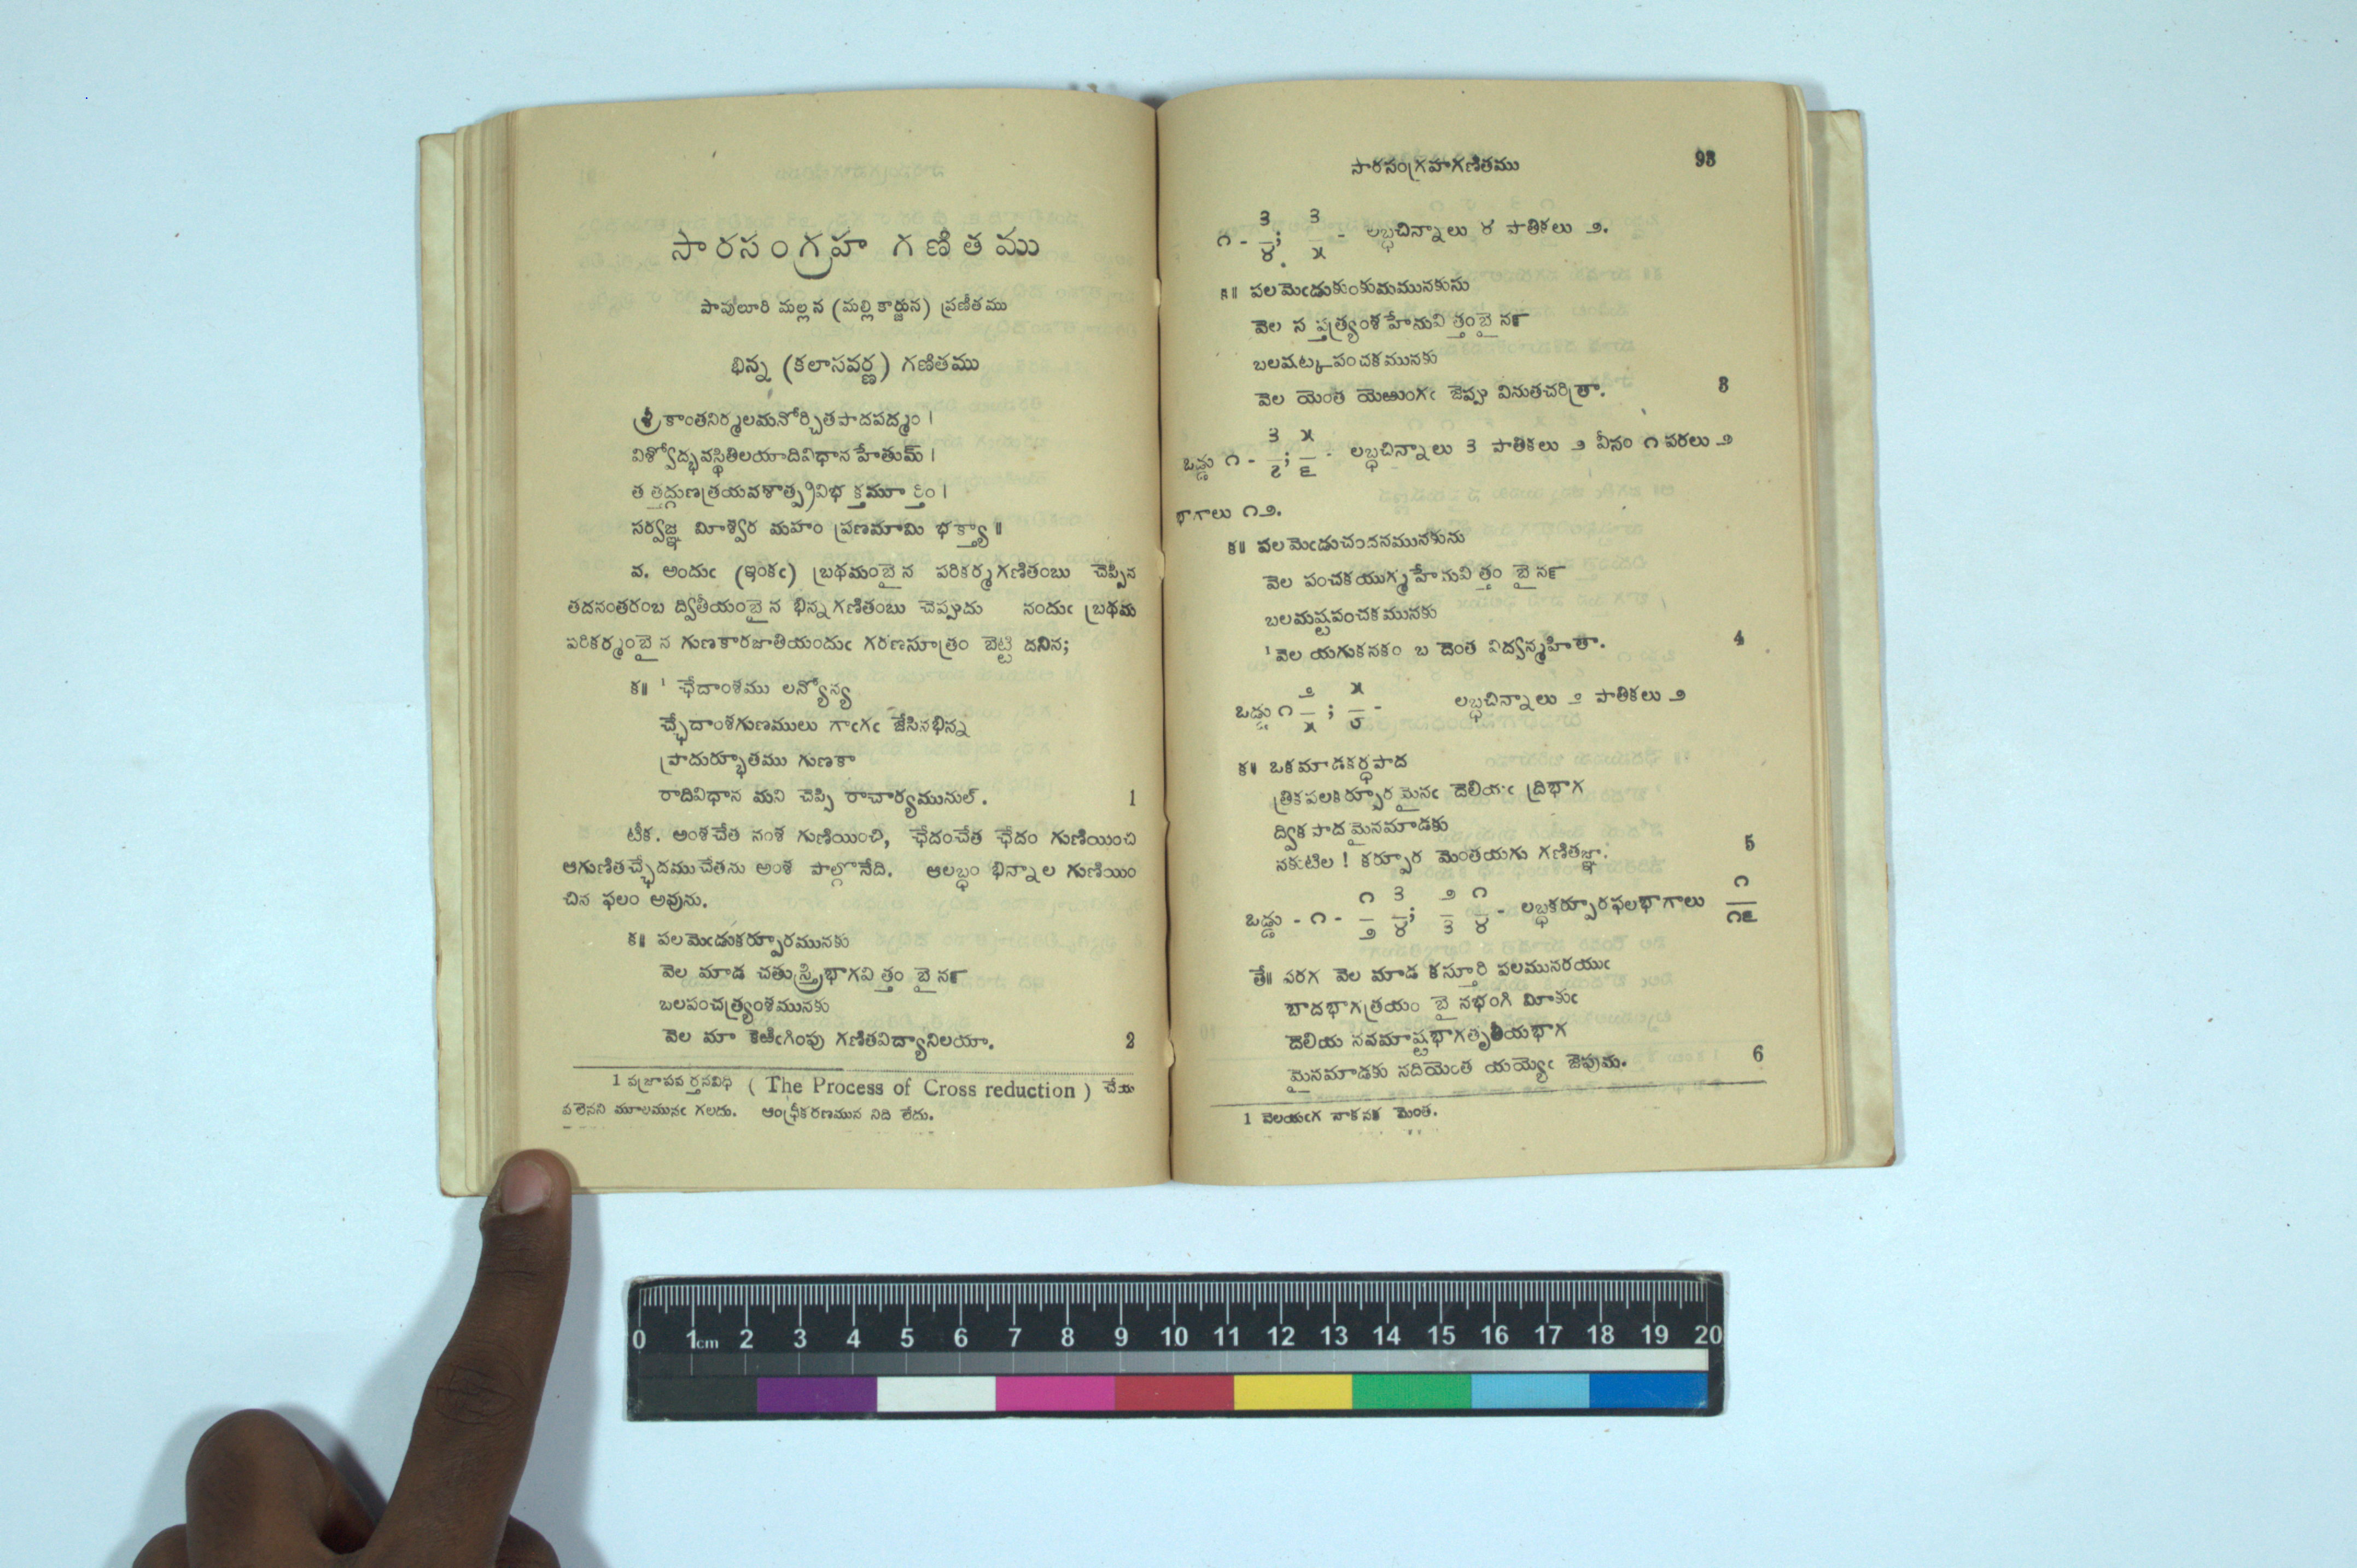 సారసంగ్రహ గణితము
పావులూరి మల్లన (మల్లికార్జున) ప్రణీతము
భిన్న (కలాసవర్ణ) గణితము
శ్రీకాంతనిర్మలమనోర్చితపాదపద్మం ।
విశ్వోద్భవస్థితిలయాదివిధానహేతుమ్ ।
తత్తద్గుణత్రయవశాత్ప్రవిభక్తమూర్తిం ।
సర్వజ్ఞ మీశ్వర మహం ప్రణమామి భక్త్యా ॥
వ. అందుఁ (ఇంకఁ) బ్రథమంబైన పరికర్మగణితంబు చెప్పిన
తదనంతరంబ ద్వితీయంబైన భిన్నగణితంబు చెప్పుదు నందుఁ బ్రథమ
పరికర్మంబైన గుణకారజాతియందుఁ గరణసూత్రం బెట్టి దనిన;
క॥ ¹ ఛేదాంశము లన్యోన్య
చ్ఛేదాంశగుణములు గాఁగఁ జేసినభిన్న
ప్రాదుర్భూతము గుణకా
రాదివిధాన మని చెప్పి రాచార్యమునుల్. 1
టీక. అంశచేత నంశ గుణియించి, ఛేదంచేత ఛేదం గుణియించి
ఆగుణితచ్ఛేదముచేతను అంశ పాల్గొనేది. ఆలబ్ధం భిన్నాల గుణియిం
చిన ఫలం అవును.
క॥ పలమెఁడుకర్పూరమునకు
వెల మాడ చతుస్త్రిభాగవిత్తం బైనఁ
బలపంచత్ర్యంశమునకు
వెల మా కెఱిఁగింపు గణితవిద్యానిలయా. 2
1 వజ్రాపవర్తనవిధి ( The Process of Cross reduction ) చేయ
వలెనని మూలమునఁ గలదు. ఆంధ్రీకరణమున నిది లేదు.
సారసంగ్రహగణితము 93
౧ - ౩/౪; ౩/౫ - లబ్ధచిన్నాలు ౪ పాతికలు ౨.
క॥ పలమెఁడుకుంకుమమునకును
వెల సప్తత్ర్యంశహేనువిత్తంబైనఁ
బలషట్కపంచకమునకు
వెల యెంత యెఱుంగఁ జెప్పు వినుతచరిత్రా. 3
ఒడ్డు ౧ - ౩/౭; ౫/౬ - లబ్ధచిన్నాలు ౩ పాతికలు ౨ వీసం ౧ పరలు ౨
భాగాలు ౧౨.
క॥ పలమెఁడుచందనమునకును
వెల పంచకయుగ్మహేమవిత్తం బైనఁ
బలమష్టపంచకమునకు
¹ వెల యగుకనకం బ దెంత విద్వన్మహితా. 4
ఒడ్డు ౧ ౨/౫ ; ౫/౮ - లబ్ధచిన్నాలు ౨ పాతికలు ౨
క॥ ఒకమాడకర్ధపాద
త్రికపలకర్పూరమైనఁ దెలియఁ ద్రిభాగ
ద్వికపాదమైనమాడకు
నకుటిల ! కర్పూర మెంతయగు గణితజ్ఞా. 5
ఒడ్డు - ౧ - ౧/౨ ౩/౪; ౨/౩ ౧/౪ - లబ్ధకర్పూరఫలభాగాలు ౧/౧౬
తే॥ నరగ వెల మాడ కస్తూరి పలమునరయుఁ
బాదభాగత్రయం బైనభంగి మీకుఁ
దెలియ నవమాష్టభాగతృతీయభాగ
మైనమాడకు నదియెంత యయ్యెఁ జెపుమ. 6
1 వెలయఁగ నాకనక మెంత.